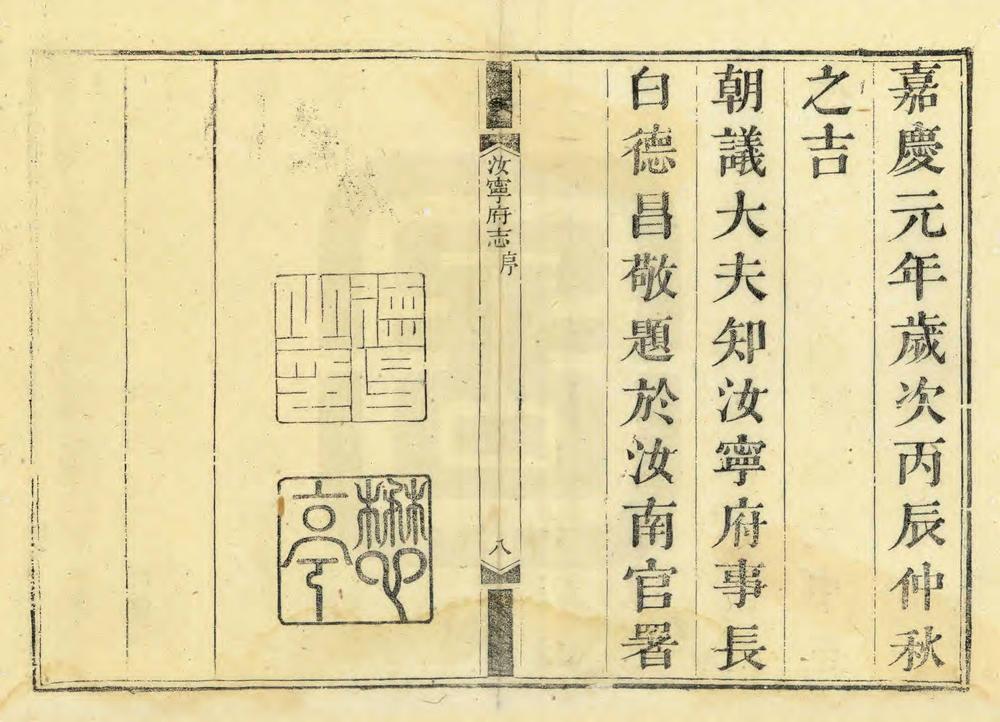 嘉慶元年歲次丙辰仲秋
之吉
朝議大夫知汝寧府事長
白德昌敬題於汝南官署
汝寧府志 序
八
德昌
之印
懋亭